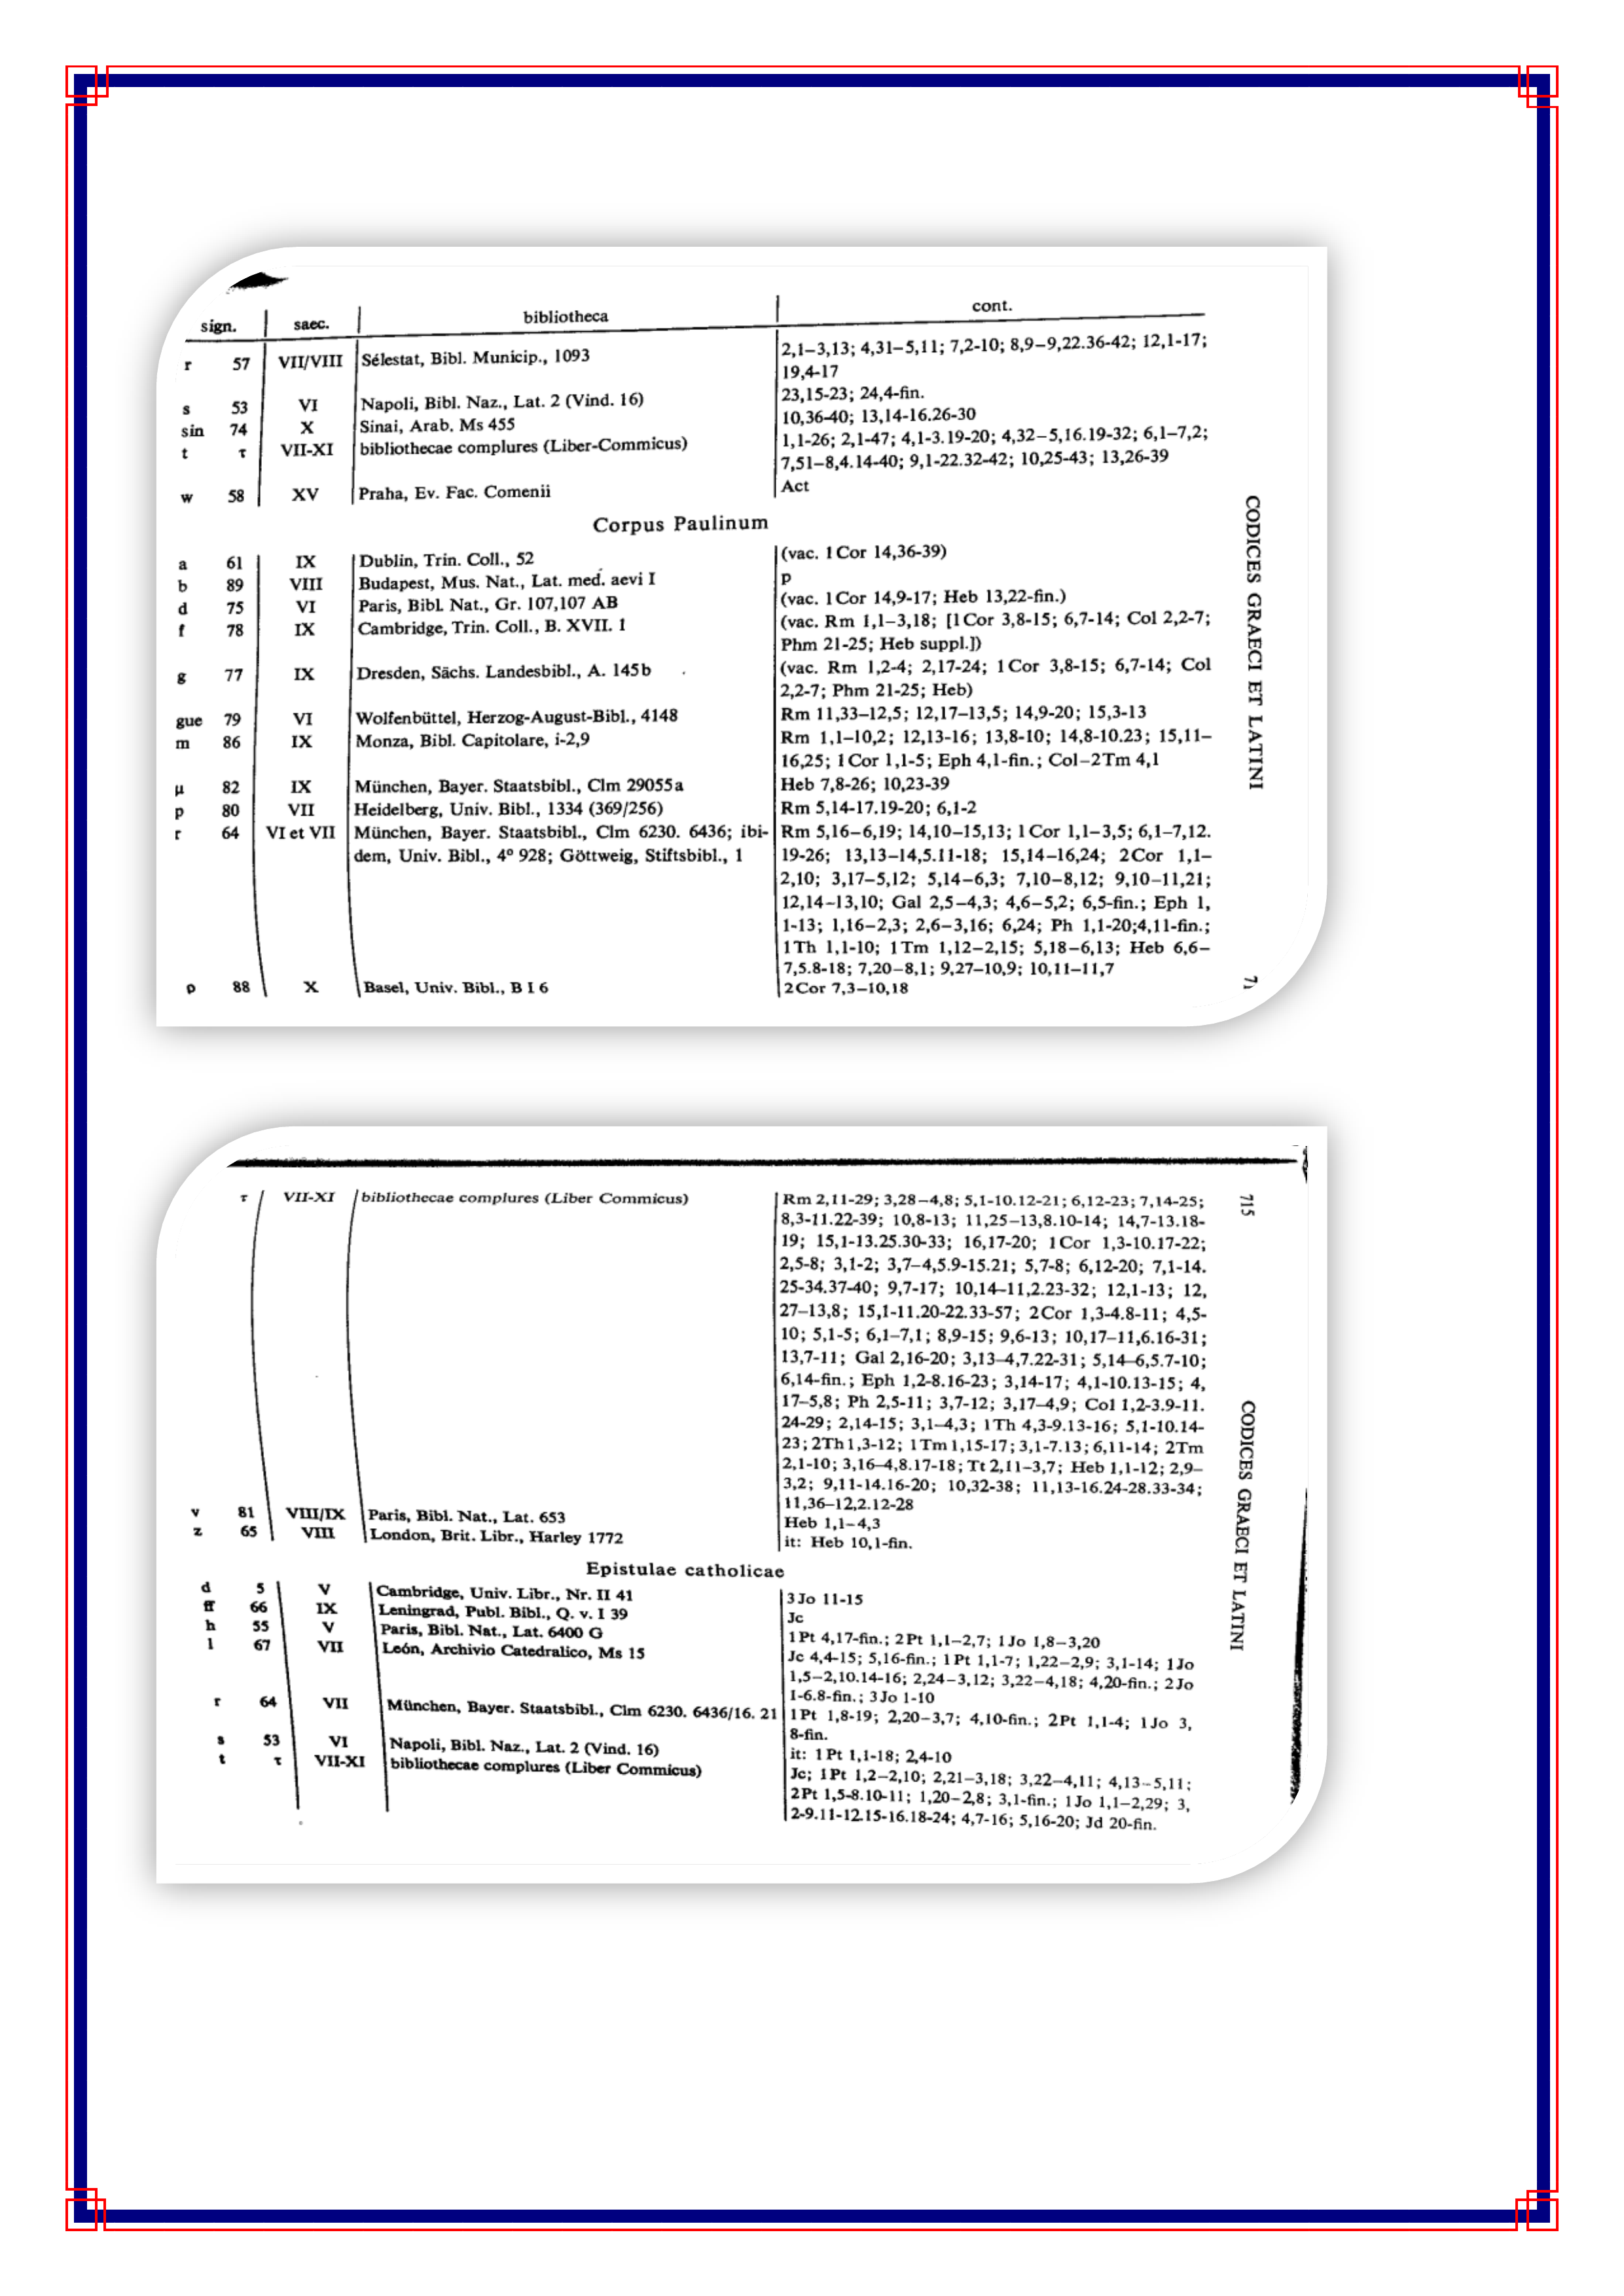 sign. saec. bibliotheca cont.
r 57 VII/VIII Sélestat, Bibl. Municip., 1093 2,1–3,13; 4,31–5,11; 7,2-10; 8,9–9,22.36-42; 12,1-17;
19,4-17
s 53 VI Napoli, Bibl. Naz., Lat. 2 (Vind. 16) 23,15-23; 24,4-fin.
sin 74 X Sinai, Arab. Ms 455 10,36-40; 13,14-16.26-30
t τ VII-XI bibliothecae complures (Liber-Commicus) 1,1-26; 2,1-47; 4,1-3.19-20; 4,32–5,16.19-32; 6,1–7,2;
7,51–8,4.14-40; 9,1-22.32-42; 10,25-43; 13,26-39
w 58 XV Praha, Ev. Fac. Comenii Act
Corpus Paulinum
a 61 IX Dublin, Trin. Coll., 52 (vac. 1Cor 14,36-39)
b 89 VIII Budapest, Mus. Nat., Lat. med. aevi I p
d 75 VI Paris, Bibl. Nat., Gr. 107,107 AB (vac. 1Cor 14,9-17; Heb 13,22-fin.)
f 78 IX Cambridge, Trin. Coll., B. XVII. 1 (vac. Rm 1,1–3,18; [1Cor 3,8-15; 6,7-14; Col 2,2-7;
Phm 21-25; Heb suppl.])
g 77 IX Dresden, Sächs. Landesbibl., A. 145b (vac. Rm 1,2-4; 2,17-24; 1Cor 3,8-15; 6,7-14; Col
2,2-7; Phm 21-25; Heb)
gue 79 VI Wolfenbüttel, Herzog-August-Bibl., 4148 Rm 11,33–12,5; 12,17–13,5; 14,9-20; 15,3-13
m 86 IX Monza, Bibl. Capitolare, i-2,9 Rm 1,1–10,2; 12,13-16; 13,8-10; 14,8-10.23; 15,11–
16,25; 1Cor 1,1-5; Eph 4,1-fin.; Col–2Tm 4,1
μ 82 IX München, Bayer. Staatsbibl., Clm 29055a Heb 7,8-26; 10,23-39
p 80 VII Heidelberg, Univ. Bibl., 1334 (369/256) Rm 5,14-17.19-20; 6,1-2
r 64 VI et VII München, Bayer. Staatsbibl., Clm 6230. 6436; ibi- Rm 5,16–6,19; 14,10–15,13; 1Cor 1,1–3,5; 6,1–7,12.
dem, Univ. Bibl., 4º 928; Göttweig, Stiftsbibl., 1 19-26; 13,13–14,5.11-18; 15,14–16,24; 2Cor 1,1–
2,10; 3,17–5,12; 5,14–6,3; 7,10–8,12; 9,10–11,21;
12,14–13,10; Gal 2,5–4,3; 4,6–5,2; 6,5-fin.; Eph 1,
1-13; 1,16–2,3; 2,6–3,16; 6,24; Ph 1,1-20;4,11-fin.;
1Th 1,1-10; 1Tm 1,12–2,15; 5,18–6,13; Heb 6,6–
7,5.8-18; 7,20–8,1; 9,27–10,9; 10,11–11,7
ρ 88 X Basel, Univ. Bibl., B I 6 2Cor 7,3–10,18
CODICES GRAECI ET LATINI
τ VII-XI bibliothecae complures (Liber Commicus) Rm 2,11-29; 3,28–4,8; 5,1-10.12-21; 6,12-23; 7,14-25;
8,3-11.22-39; 10,8-13; 11,25–13,8.10-14; 14,7-13.18-
19; 15,1-13.25.30-33; 16,17-20; 1Cor 1,3-10.17-22;
2,5-8; 3,1-2; 3,7–4,5.9-15.21; 5,7-8; 6,12-20; 7,1-14.
25-34.37-40; 9,7-17; 10,14–11,2.23-32; 12,1-13; 12,
27–13,8; 15,1-11.20-22.33-57; 2Cor 1,3-4.8-11; 4,5-
10; 5,1-5; 6,1–7,1; 8,9-15; 9,6-13; 10,17–11,6.16-31;
13,7-11; Gal 2,16-20; 3,13–4,7.22-31; 5,14–6,5.7-10;
6,14-fin.; Eph 1,2-8.16-23; 3,14-17; 4,1-10.13-15; 4,
17–5,8; Ph 2,5-11; 3,7-12; 3,17–4,9; Col 1,2-3.9-11.
24-29; 2,14-15; 3,1–4,3; 1Th 4,3-9.13-16; 5,1-10.14-
23; 2Th 1,3-12; 1Tm 1,15-17; 3,1-7.13; 6,11-14; 2Tm
2,1-10; 3,16–4,8.17-18; Tt 2,11–3,7; Heb 1,1-12; 2,9–
3,2; 9,11-14.16-20; 10,32-38; 11,13-16.24-28.33-34;
11,36–12,2.12-28
v 81 VIII/IX Paris, Bibl. Nat., Lat. 653 Heb 1,1–4,3
z 65 VIII London, Brit. Libr., Harley 1772 it: Heb 10,1-fin.
Epistulae catholicae
d 5 V Cambridge, Univ. Libr., Nr. II 41 3Jo 11-15
ff 66 IX Leningrad, Publ. Bibl., Q. v. I 39 Jc
h 55 V Paris, Bibl. Nat., Lat. 6400 G 1Pt 4,17-fin.; 2Pt 1,1–2,7; 1Jo 1,8–3,20
l 67 VII León, Archivio Catedralico, Ms 15 Jc 4,4-15; 5,16-fin.; 1Pt 1,1-7; 1,22–2,9; 3,1-14; 1Jo
1,5–2,10.14-16; 2,24–3,12; 3,22–4,18; 4,20-fin.; 2Jo
1-6.8-fin.; 3Jo 1-10
r 64 VII München, Bayer. Staatsbibl., Clm 6230. 6436/16. 21 1Pt 1,8-19; 2,20–3,7; 4,10-fin.; 2Pt 1,1-4; 1Jo 3,
8-fin.
s 53 VI Napoli, Bibl. Naz., Lat. 2 (Vind. 16) it: 1Pt 1,1-18; 2,4-10
t τ VII-XI bibliothecae complures (Liber Commicus) Jc; 1Pt 1,2–2,10; 2,21–3,18; 3,22–4,11; 4,13–5,11;
2Pt 1,5-8.10-11; 1,20–2,8; 3,1-fin.; 1Jo 1,1–2,29; 3,
2-9.11-12.15-16.18-24; 4,7-16; 5,16-20; Jd 20-fin.
715
CODICES GRAECI ET LATINI